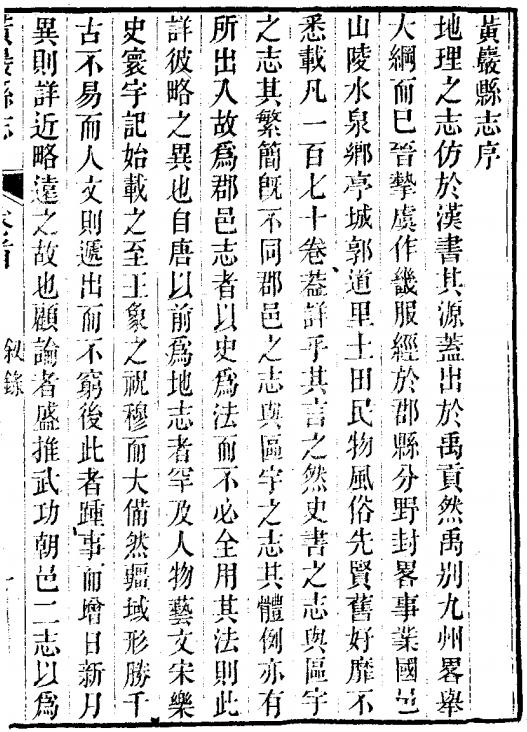 黃巖縣志序
地理之志仿於漢書其源蓋出於禹貢然禹别九州畧舉
大綱而巳晉摯虞作畿服經於郡縣分野封畧事業國邑
山陵水泉鄉亭城郭道里土田民物風俗先賢舊好靡不
悉載凡一百七十卷葢詳乎其言之然史書之志與區宇
之志其繁簡旣不同郡邑之志與區宇之志其體例亦有
所出入故爲郡邑志者以史爲法而不必全用其法則此
詳彼略之異也自唐以前爲地志者罕及人物藝文宋樂
史寰宇記始載之至王象之祝穆而大備然疆域形勝千
古不易而人文則遞出而不窮後此者踵事而增日新月
異則詳近略遠之故也顧論者盛推武功朝邑二志以爲
黃巖縣志
卷首
敘錄
一